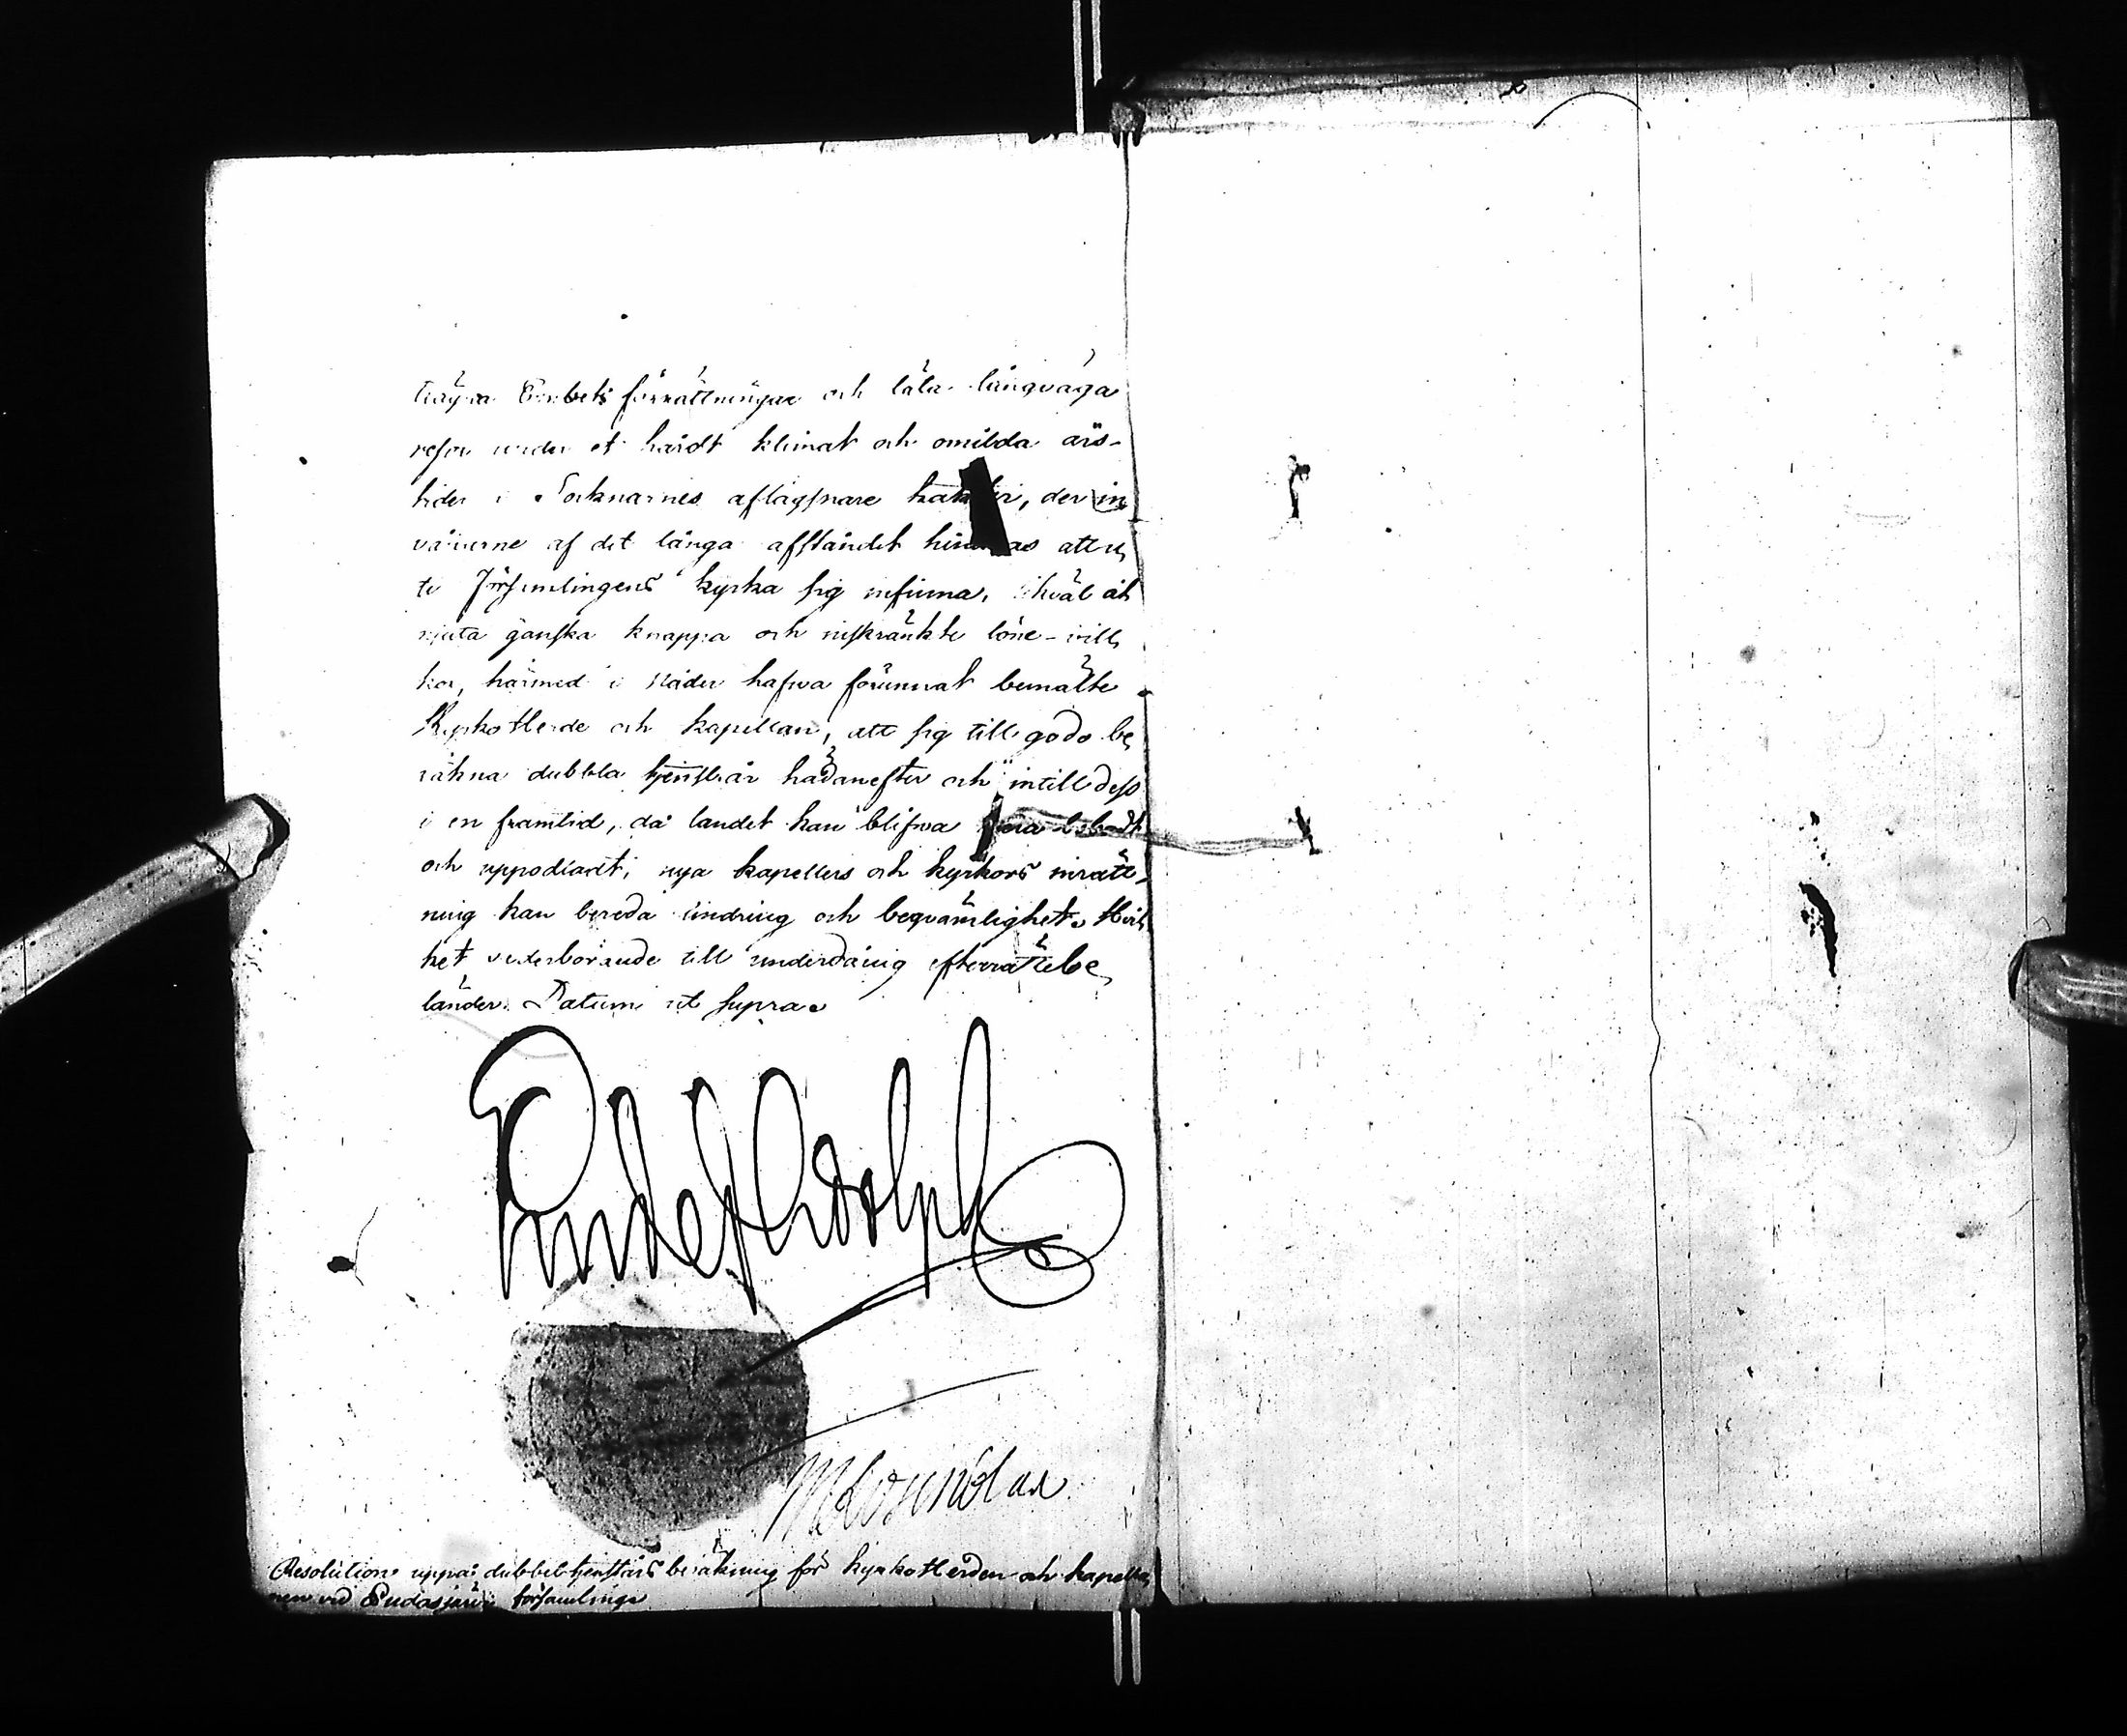 trägna Embets förrättningar och täta långväga
resor under et hårdt klimat och omilda års-
tider i Socknarnes aflägsnare trakter, der in
vånerne af det långa afståndet hindras att u
ti Församlingens kyrka sig infinna, likväl åt
njuta ganska knappa och inskränkte löne-vill
kor, härmed i Nåder hafwa förunnat bemälte
Kyrkoherde och kapellan, att sig till godo be
räkna dubbla tjenstår hädanefter och intill dess
i en framtid, då landet kan blifwa mera bebodt
och uppodladt, nya kapellers och kyrkors inrätt-
ning kan bereda lindring och beqvämlighet. Hvil
ket vederbörande till underdånig efterrättelse
länder. Datum ut supra.
Gustaf Adolph
Resolution uppå dubbel tjenstårs beräkning för kyrkoherden och kapella
nen vid Pudasjärvi församling.